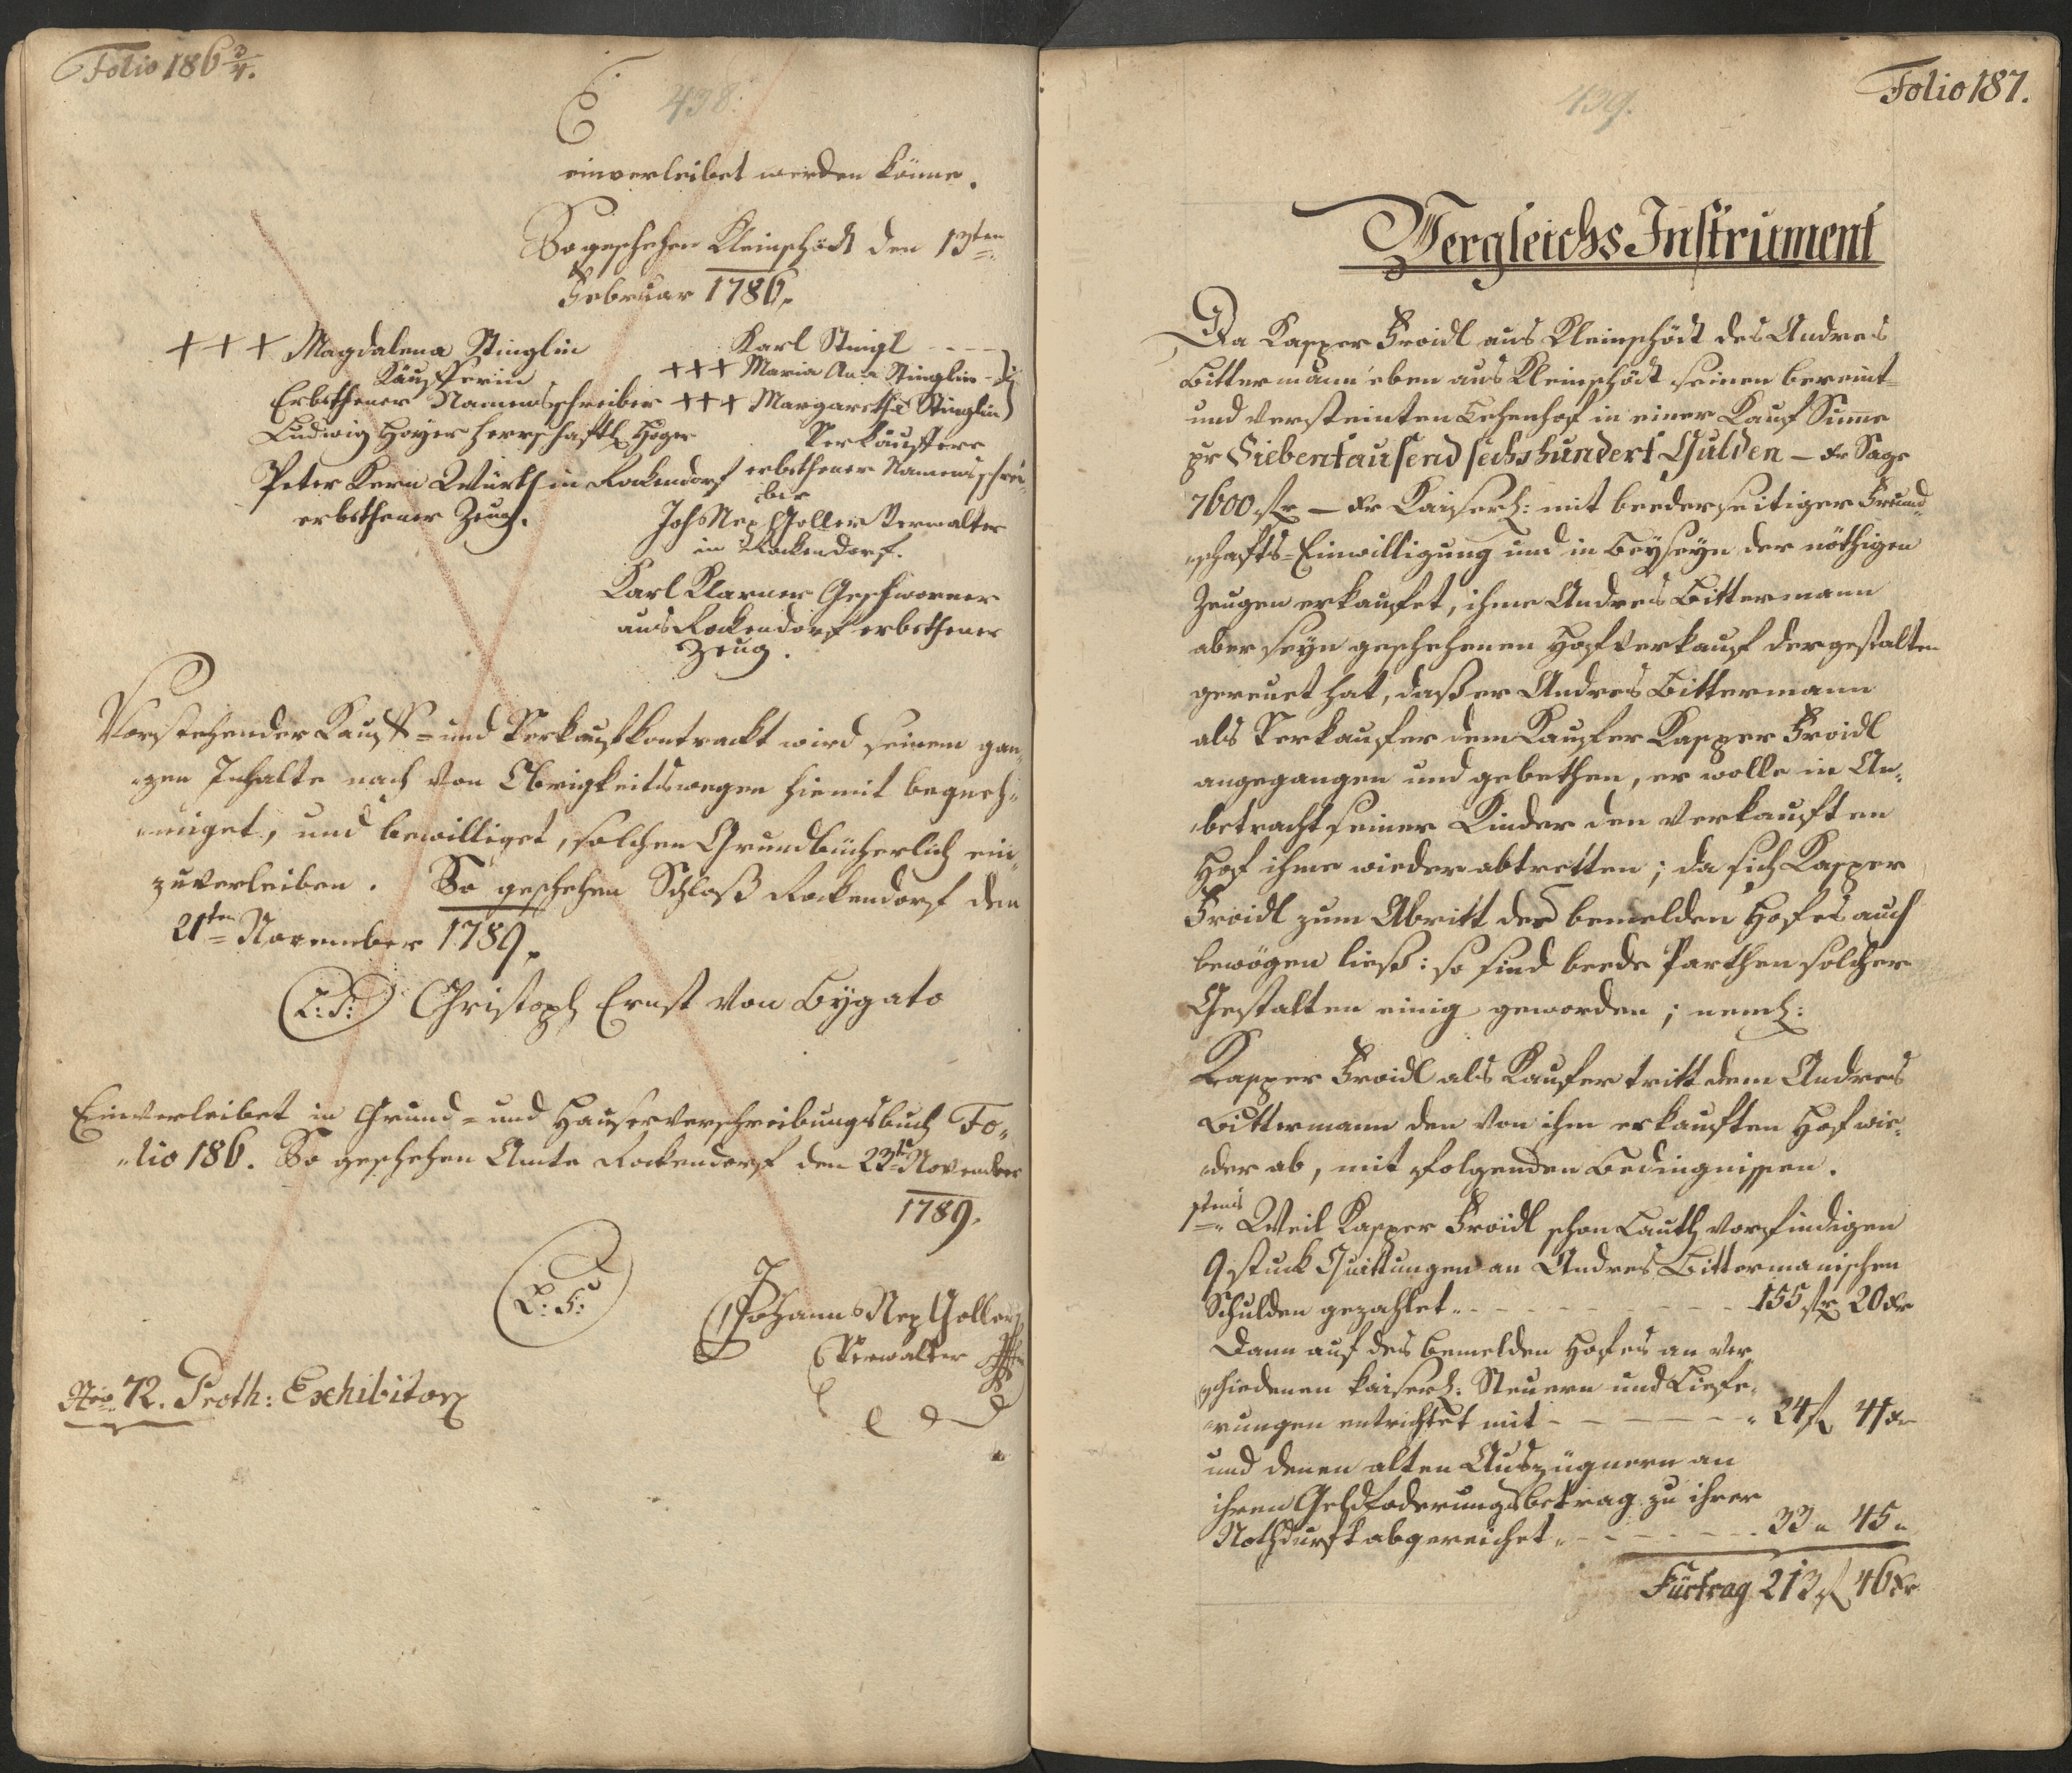 Folio 186 3/4.
438.
einverleibet werden könne.
So geschehen Kleinschöd den 13ten
Februar 1786.
+++ Magdalena Stinglin
Käufferin
Erbethener Namensschreiber
Ludwig Hoyer herrschaftl Jäger
Peter Kern Würth in Rockendorf
erbethener Zeug.
Karl Stingl
+++ Maria Ana Stinglin
+++ Margaretha Stinglin
Verkäuffere
erbethener Namensschrei-
ber
Joh Nep Goller Verwalter
in Rockendorf.
Karl Klarner Geschworner
aus Rockendorf erbethener
Zeug.
Vorstehender Kauff- und Verkaufkontrackt wird seinem gan-
zen Inhalte nach von Obrigkeitswegen hiemit begneh-
miget, und bewilliget, solchen Grundbücherlich ein-
zuverleiben. So geschehen Schloß Rockendorf den
21ten November 1789.
L: S: Christoph Ernst von Bygato
Einverleibet in Grund- und Hauserverschreibungsbuch Fo-
lio 186. So geschehen Amte Rockendorf den 23ten November
1789.
L: S:
Johann Nep Goller
Verwalter
Nro 72. Proth: Exhibitor
Folio 187.
439.
Vergleichs Instrument
Da Kasper Froidl aus Kleinschöd des Andres
Bittermann eben aus Kleinschöd seinen bereint-
und versteinten Lehenhof in einer Kauf Sume
pr Siebentausend sechshundert Gulden — Xr Sage
7600 fl — Xr Kaiserl: mit beederseitiger Freund-
schafts-Einwilligung und in Beyseyn der nöthigen
Zeugen erkaufet, ihme Andres Bittermann
aber seyn geschehenen Hofverkauf dergestalten
gereuet hat, daß er Andres Bittermann
als Verkaufer dem Kaufer Kasper Froidl
angegangen und gebethen, er wolle in An-
betracht seiner Kinder den verkauften
Hof ihme wieder abtretten; da sich Kasper
Froidl zum Abritt des bemelden Hofes auch
bewögen ließ: so sind beede Parthen solcher
Gestalten einig geworden; neml:
Kasper Froidl als Kaufer tritt dem Andres
Bittermann den von ihm erkauften Hof wie-
der ab, mit folgenden Bedingnissen.
1stens Weil Kasper Froidl schon Lauth vorfindigen
9 stuck Quittungen an Andres Bittermanischen
Schulden gezahlet 155 fl 20 Xr
Dann auf des bemelden Hofes an ver-
schiedenen kaiserl: Steuern und Liefe-
rungen entrichtet mit 24 fl 41 Xr
und denen alten Auszügnern an
ihren Geldfoderungsbetrag zu ihrer
Nothdurft abgereichet 33 " 45 "
Fürtrag 213 fl 46 Xr